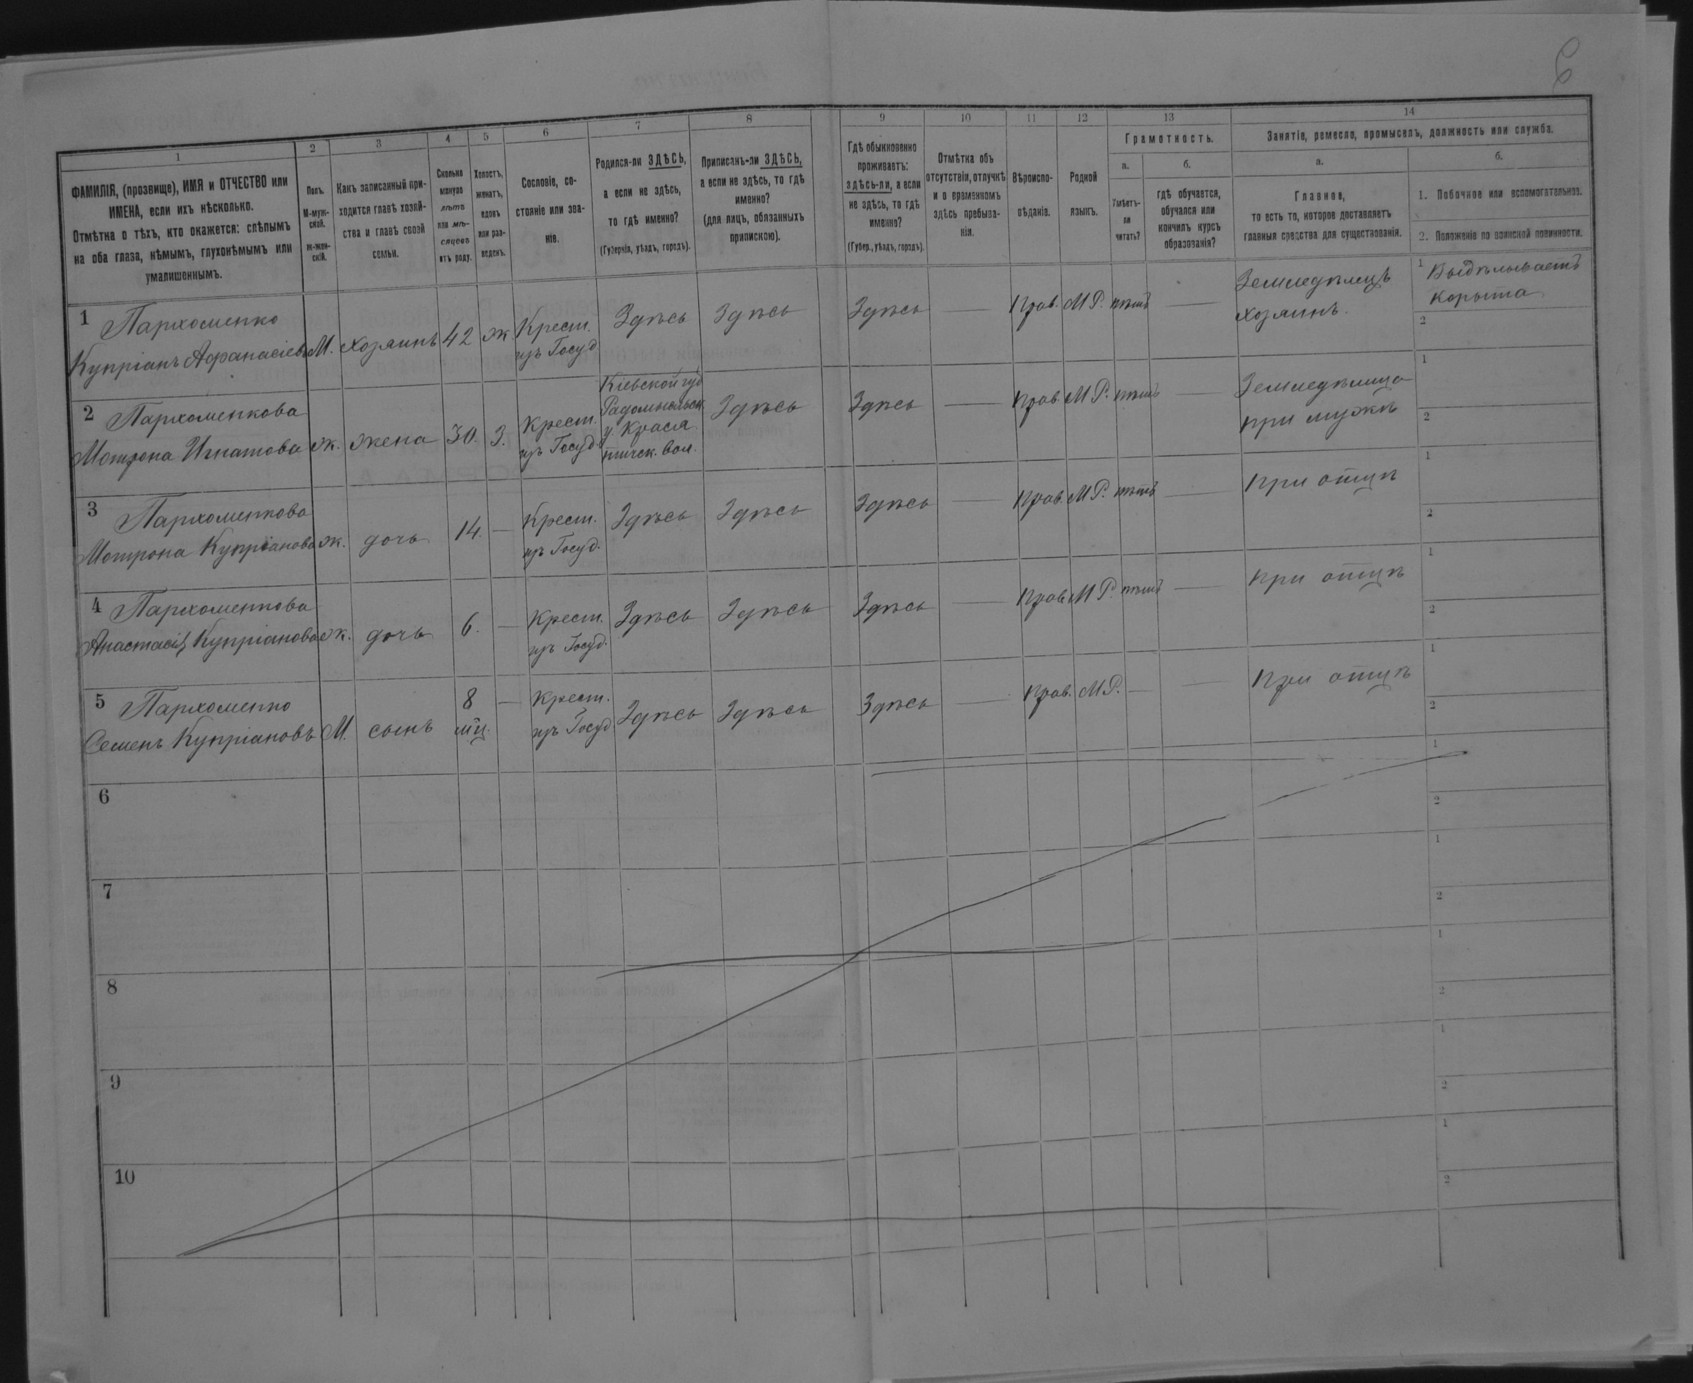 1
2
3
4
5
6
7
8
9
10
11
12
13
14
ФАМИЛІЯ, (прозвище), ИМЯ и ОТЧЕСТВО или
ИМЕНА, если ихъ нѣсколько.
Отмѣтка о тѣхъ, кто окажется: слѣпымъ
на оба глаза, нѣмымъ, глухонѣмымъ или
умалишеннымъ.
Полъ.
М-муж-
ской.
Ж-жен-
скій.
Какъ записанный при-
ходится главѣ хозяй-
ства и главѣ своей
семьи.
Сколько
минуло
лѣтъ
или мѣ-
сяцевъ
отъ роду.
Холостъ,
женатъ,
вдовъ
или раз-
веденъ.
Сословіе, со-
стояніе или зва-
ніе.
Родился-ли ЗДѢСЬ,
а если не здѣсь,
то гдѣ именно?
(Губернія, уѣздъ, городъ).
Приписанъ-ли ЗДѢСЬ,
а если не здѣсь, то гдѣ
именно?
(для лицъ, обязанныхъ
припискою).
Гдѣ обыкновенно
проживаетъ:
здѣсь-ли, а если
не здѣсь, то гдѣ
именно?
(Губер., уѣздъ, городъ).
Отмѣтка объ
отсутствіи, отлучкѣ
и о временномъ
здѣсь пребыва-
ніи.
Вѣроиспо-
вѣданіе.
Родной
языкъ.
Грамотность.
а.
б.
Умѣетъ-
ли
читать?
гдѣ обучается,
обучался или
кончилъ курсъ
образованія?
Занятіе, ремесло, промыселъ, должность или служба.
а.
б.
Главное,
то есть то, которое доставляетъ
главныя средства для существованія.
1. Побочное или вспомогательное.
2. Положеніе по воинской повинности.
1 Пархоменко
Купріанъ Афанасіевъ М. хозяинъ 42 ж Крест.
изъ Госуд
Здѣсь Здѣсь Здѣсь — Прав. М Р. нѣтъ —
Земледѣлецъ
хозяинъ.
1 Выдѣлываетъ
Корыта
2
2 Пархоменкова
Мотрона Игнатова ж. жена 30. З. Крест.
изъ Госуд.
Кіевской губ
Радомысльск
у Крася
тичск. вол.
Здѣсь Здѣсь — Прав М Р. нѣтъ —
Земледѣлица
при мужѣ
1
2
3 Пархоменкова
Мотрона Купріанова ж. дочь 14. — Крест.
изъ Госуд.
Здѣсь Здѣсь Здѣсь — Прав М Р. нѣтъ — При отцѣ
1
2
4 Пархоменкова
Анастасія Купріанова ж. дочь 6. — Крест.
изъ Госуд.
Здѣсь Здѣсь Здѣсь — Прав М Р. нѣтъ — при отцѣ
1
2
5 Пархоменко
Семенъ Купріановъ М. сынъ 8
мц. — Крест.
изъ Госуд
Здѣсь Здѣсь Здѣсь — Прав. М Р. — — При отцѣ
1
2
6
1
2
7
1
2
8
1
2
9
1
2
10
1
2